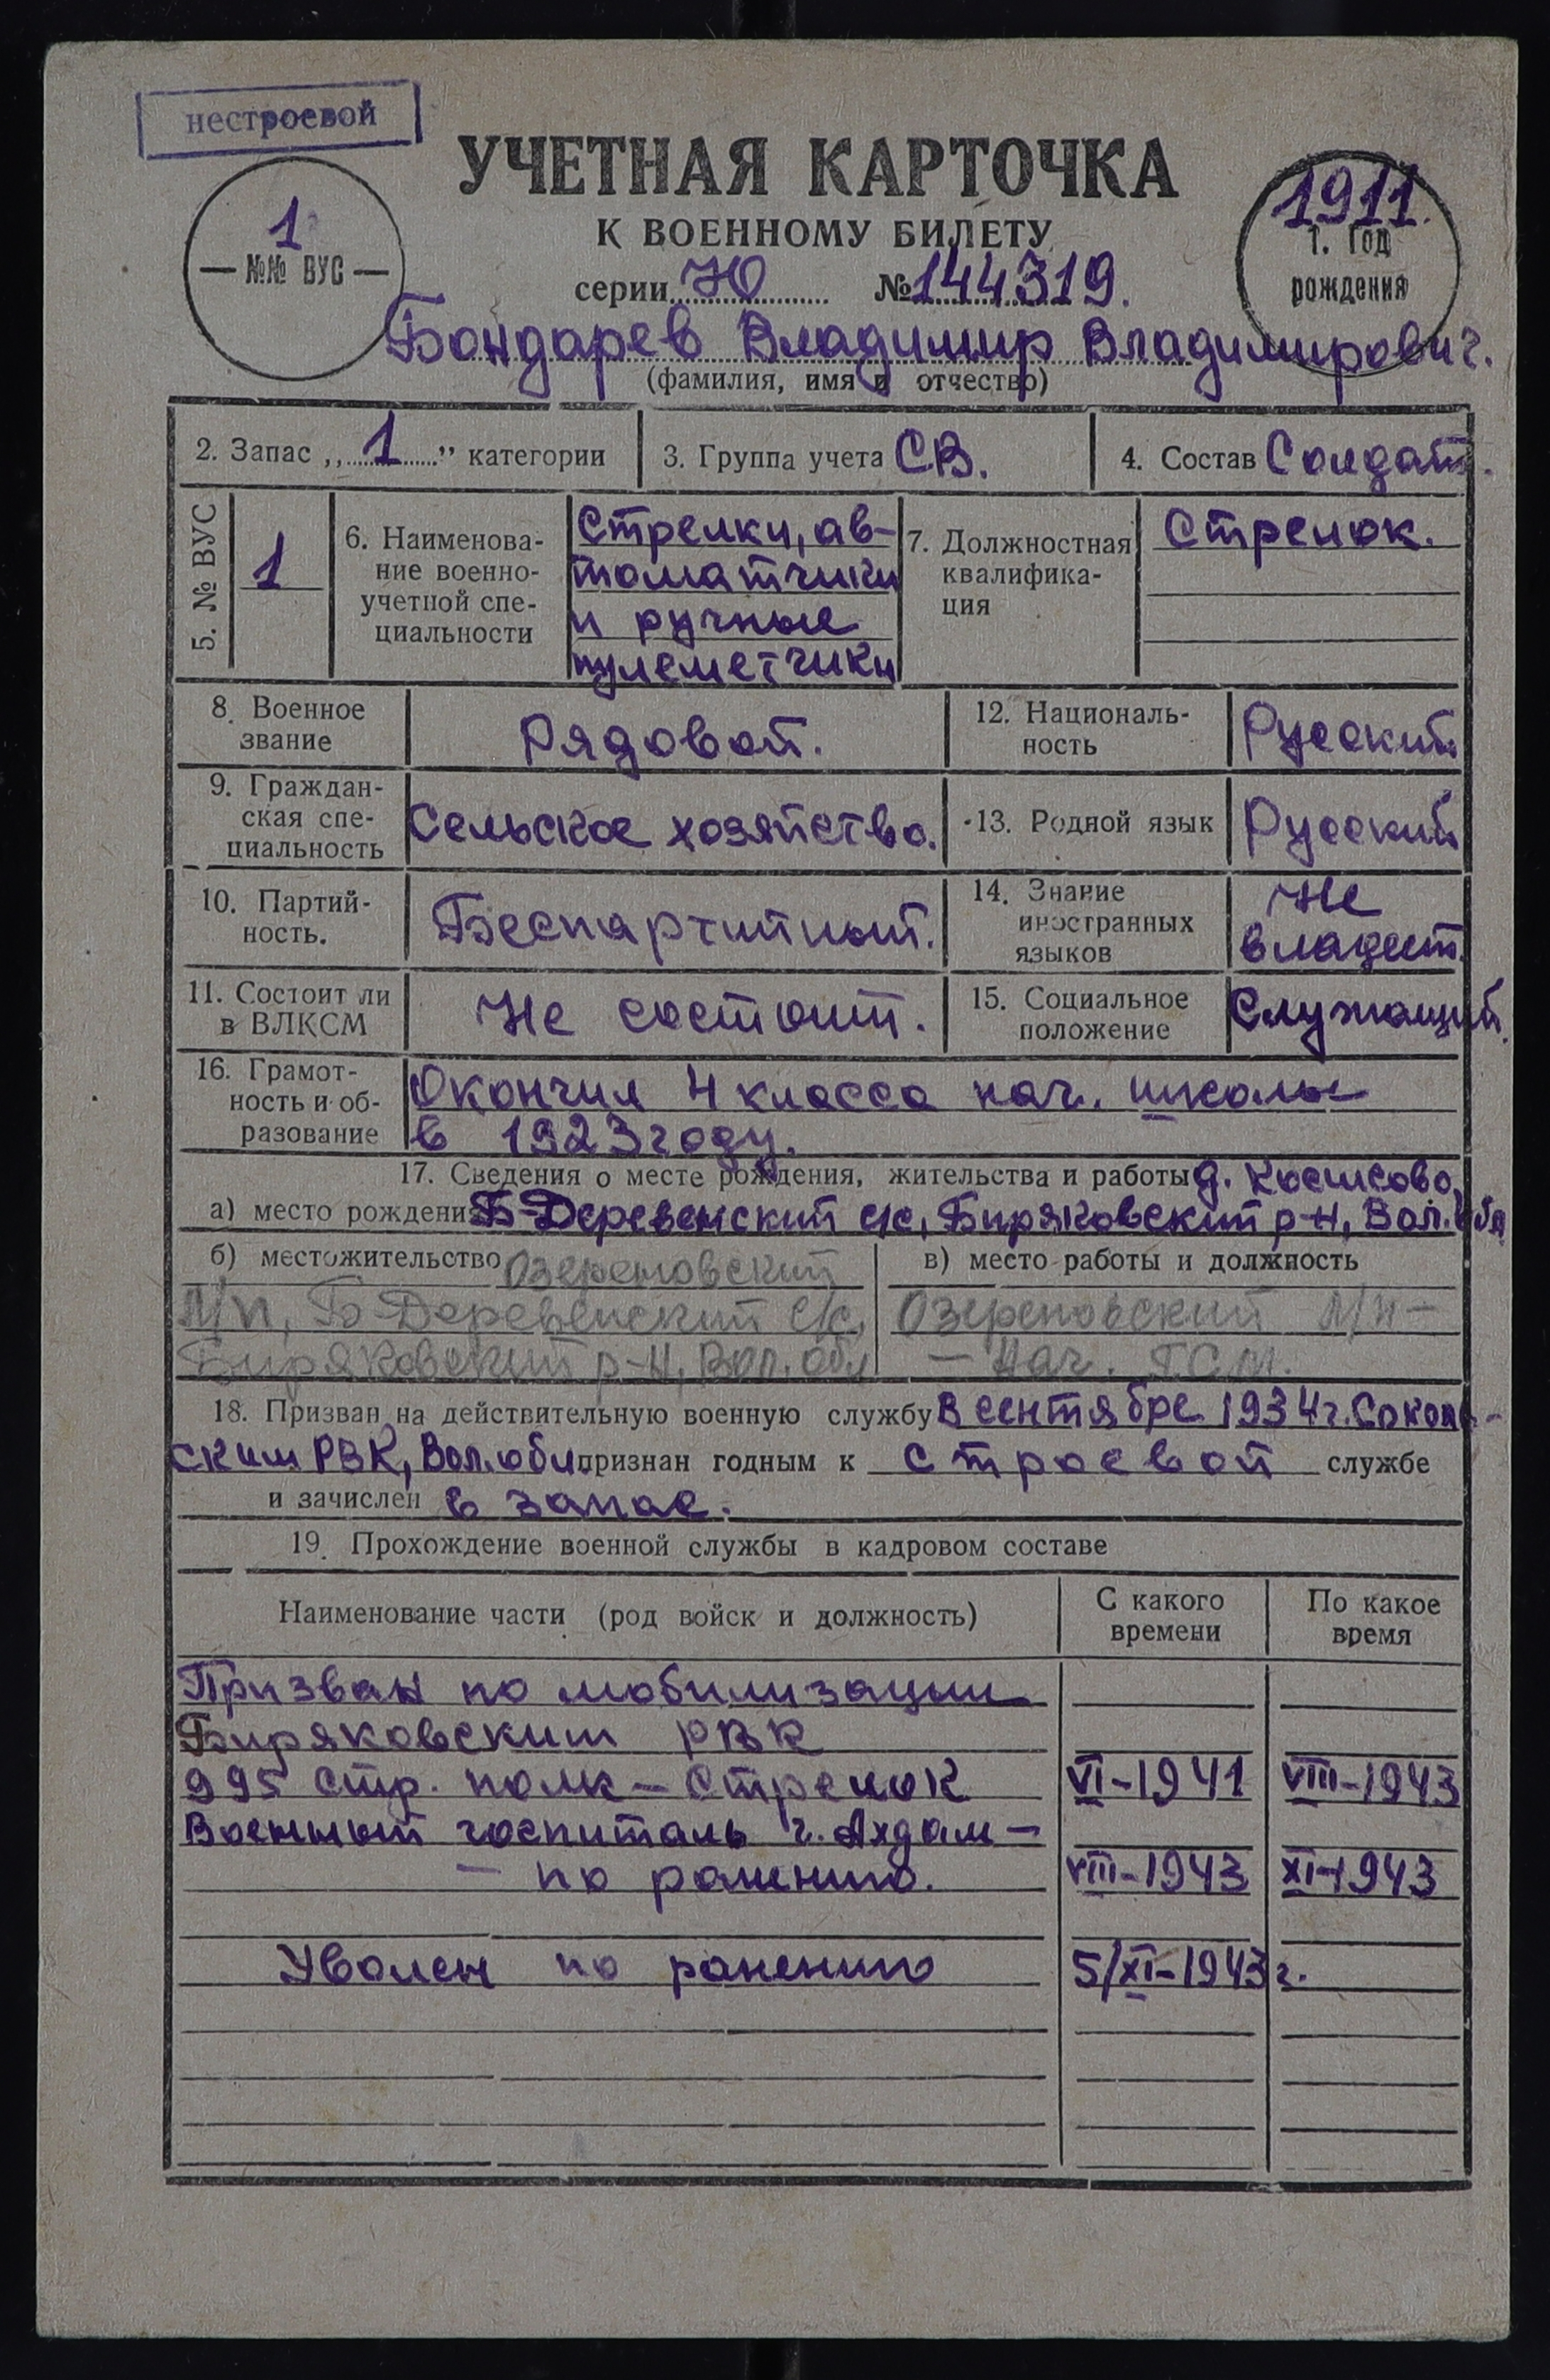 нестроевой
УЧЕТНАЯ КАРТОЧКА
К ВОЕННОМУ БИЛЕТУ
серии Ю № 144319.
1
— №№ ВУС —
1911.
1. Год
рождения
Бондарев Владимир Владимирович.
(фамилия, имя и отчество)
2. Запас „1” категории
3. Группа учета СВ.
4. Состав Солдат.
5. № ВУС
1
6. Наименова-
ние военно-
учетной спе-
циальности
Стрелки, ав-
томатчики
и ручные
пулеметчики
7. Должностная
квалифика-
ция
Стрелок.
8. Военное
звание
Рядовой.
12. Националь-
ность
Русский.
9. Граждан-
ская спе-
циальность
Сельское хозяйство.
13. Родной язык
Русский
10. Партий-
ность.
Беспартийный.
14. Знание
иностранных
языков
Не
владеет.
11. Состоит ли
в ВЛКСМ
Не состоит.
15. Социальное
положение
Служащий.
16. Грамот-
ность и об-
разование
Окончил 4 класса нач. школы
в 1923 году.
17. Сведения о месте рождения, жительства и работы д.
а) место рождения Б-Деревенский с/с, Биряковский р-н, Вол. обл
б) местожительство Озереновский
Л/п, Б-Деревенский с/с,
Биряковский р-н, Вол. обл
в) место работы и должность
Озереновский Л/п —
— Нач. Г.С.М.
18. Призван на действительную военную службу в сентябре 1934г. Соколь-
ским РВК, Вол. обл. признан годным к строевой службе
и зачислен в запас.
19. Прохождение военной службы в кадровом составе
Наименование части (род войск и должность)
С какого
времени
По какое
время
Призван по мобилизации
Биряковским РВК
995 стр. полк — Стрелок VI-1941 VIII-1943
Военный госпиталь г. Ахдам —
— по ранению. VIII-1943 XI-1943
Уволен по ранению 5/XI-1943 г.